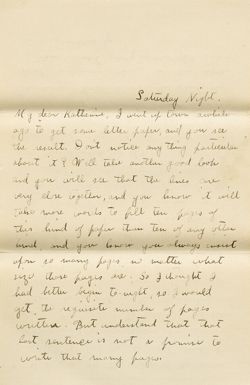 Saturday Night.
My dear Katherine, I went up town awhile
ago to get some letter paper, and you see
the result. Dont notice anything particular
about it? Well take another good look
and you will see that the lines are
very close together, and you know it will
take more words to fill ten pages of
this kind of paper than ten of any other
kind, and you know you always insist
upon so many pages no matter what
size those pages are. So I thought I
had better begin to-night, so I would
get the requisite number of pages
written. But understand that that
last sentence is not a promise to
write that many pages.